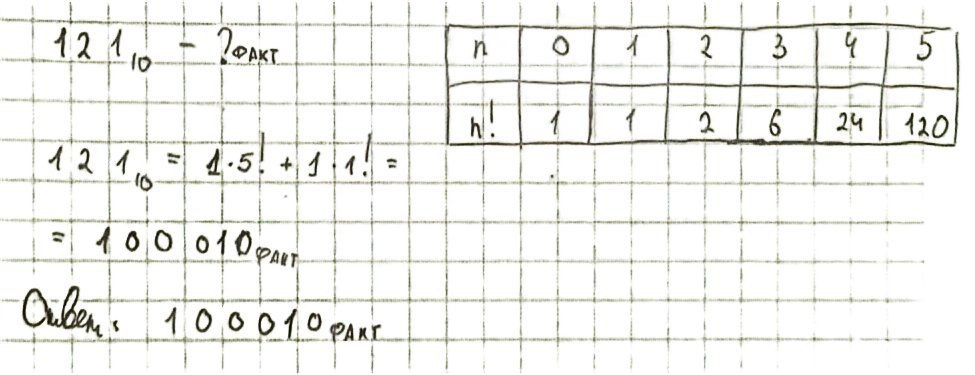 121₁₀ - ?ФАКТ
n 0 1 2 3 4 5
n! 1 1 2 6 24 120
121₁₀ = 1·5! + 1·1! =
= 100010ФАКТ
Ответ: 100010ФАКТ